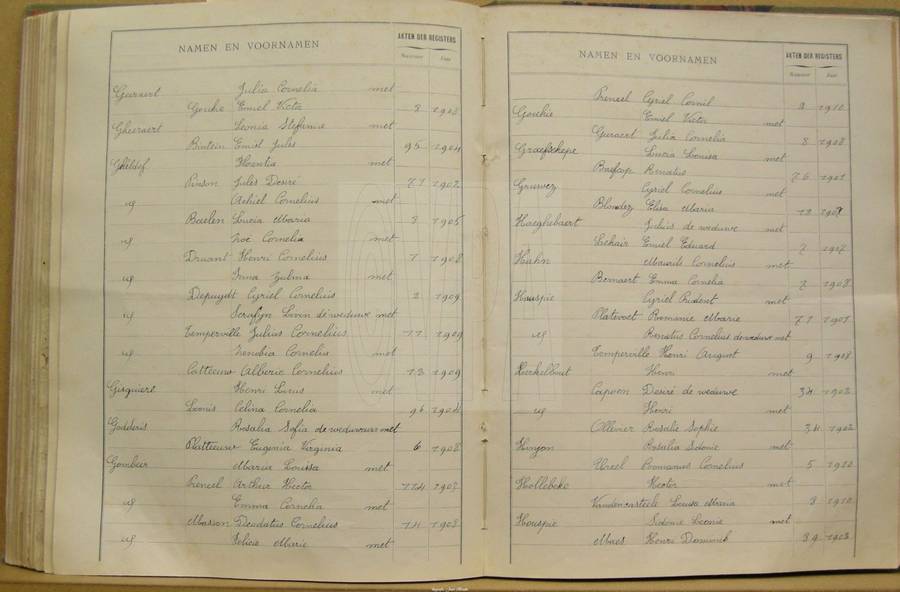 NAMEN EN VOORNAMEN AKTEN DER REGISTERS
Nummer Jaar
Geeraert Julia Cornelia met
Goukie Emiel Victor 8 1908
Gheeraert Leonia Stefanie met
Bintein Emiel Jules 95 1904
Ghildof Horentia met
Pinson Jules Desiré 71 1902
id Achiel Cornelius met
Baelen Lucia Maria 3 1905
id Noë Cornelia met
Druant Henri Cornelius 7 1908
id Irma Zulma met
Depuydt Cyriel Cornelius 2 1909
id Serafyn Livin de weduwe met
Temperville Julius Cornelius 11 1909
id Zenobia Cornelia met
Catteeuw Alberic Cornelius 13 1909
Gisquiere Henri Livius met
Leonis Celina Cornelia 96 1904
Godderis Rosalia Sofia de weduwnaar met
Platteeuw Eugenia Virginia 6 1908
Gombeir Maria Louisa met
Preneel Arthur Hector 114 1903
id Emma Cornelia met
Masson Deodatus Cornelius 14 1903
id Felicie Marie met
NAMEN EN VOORNAMEN AKTEN DER REGISTERS
Nummer Jaar
Preneel Cyriel Cornil 8 1910
Goukie Emiel Victor met
Geeraert Julia Cornelia 8 1908
Graefschepe Lucia Louisa met
Renatus 76 1901
Gruwez Cyriel Cornelius met
Blondez Elisa Maria 12 1907
Haeghebaert Julius de weduwe met
Lehair Emiel Eduard 7 1907
Hahn Maurits Cornelius met
Bernaert Emma Cornelia 7 1908
Houspie Cyriel Prudent met
Platevoet Romanie Marie 71 1901
id Renatus Cornelius de weduwe met
Temperville Henri August 9 1908
Herkelbout Henri met
Capoen Desiré de weduwe 34 1902
id Henri met
Ollevier Rosalie Sophie 34 1902
Hinjon Rosalia Sidonie met
Ureel Romanus Cornelius 5 1910
Hollebeke Hector met
Vandencasteele Louisa Maria 3 1910
Houspie Sidonie Leonie met
Maes Henri Dominik 39 1903